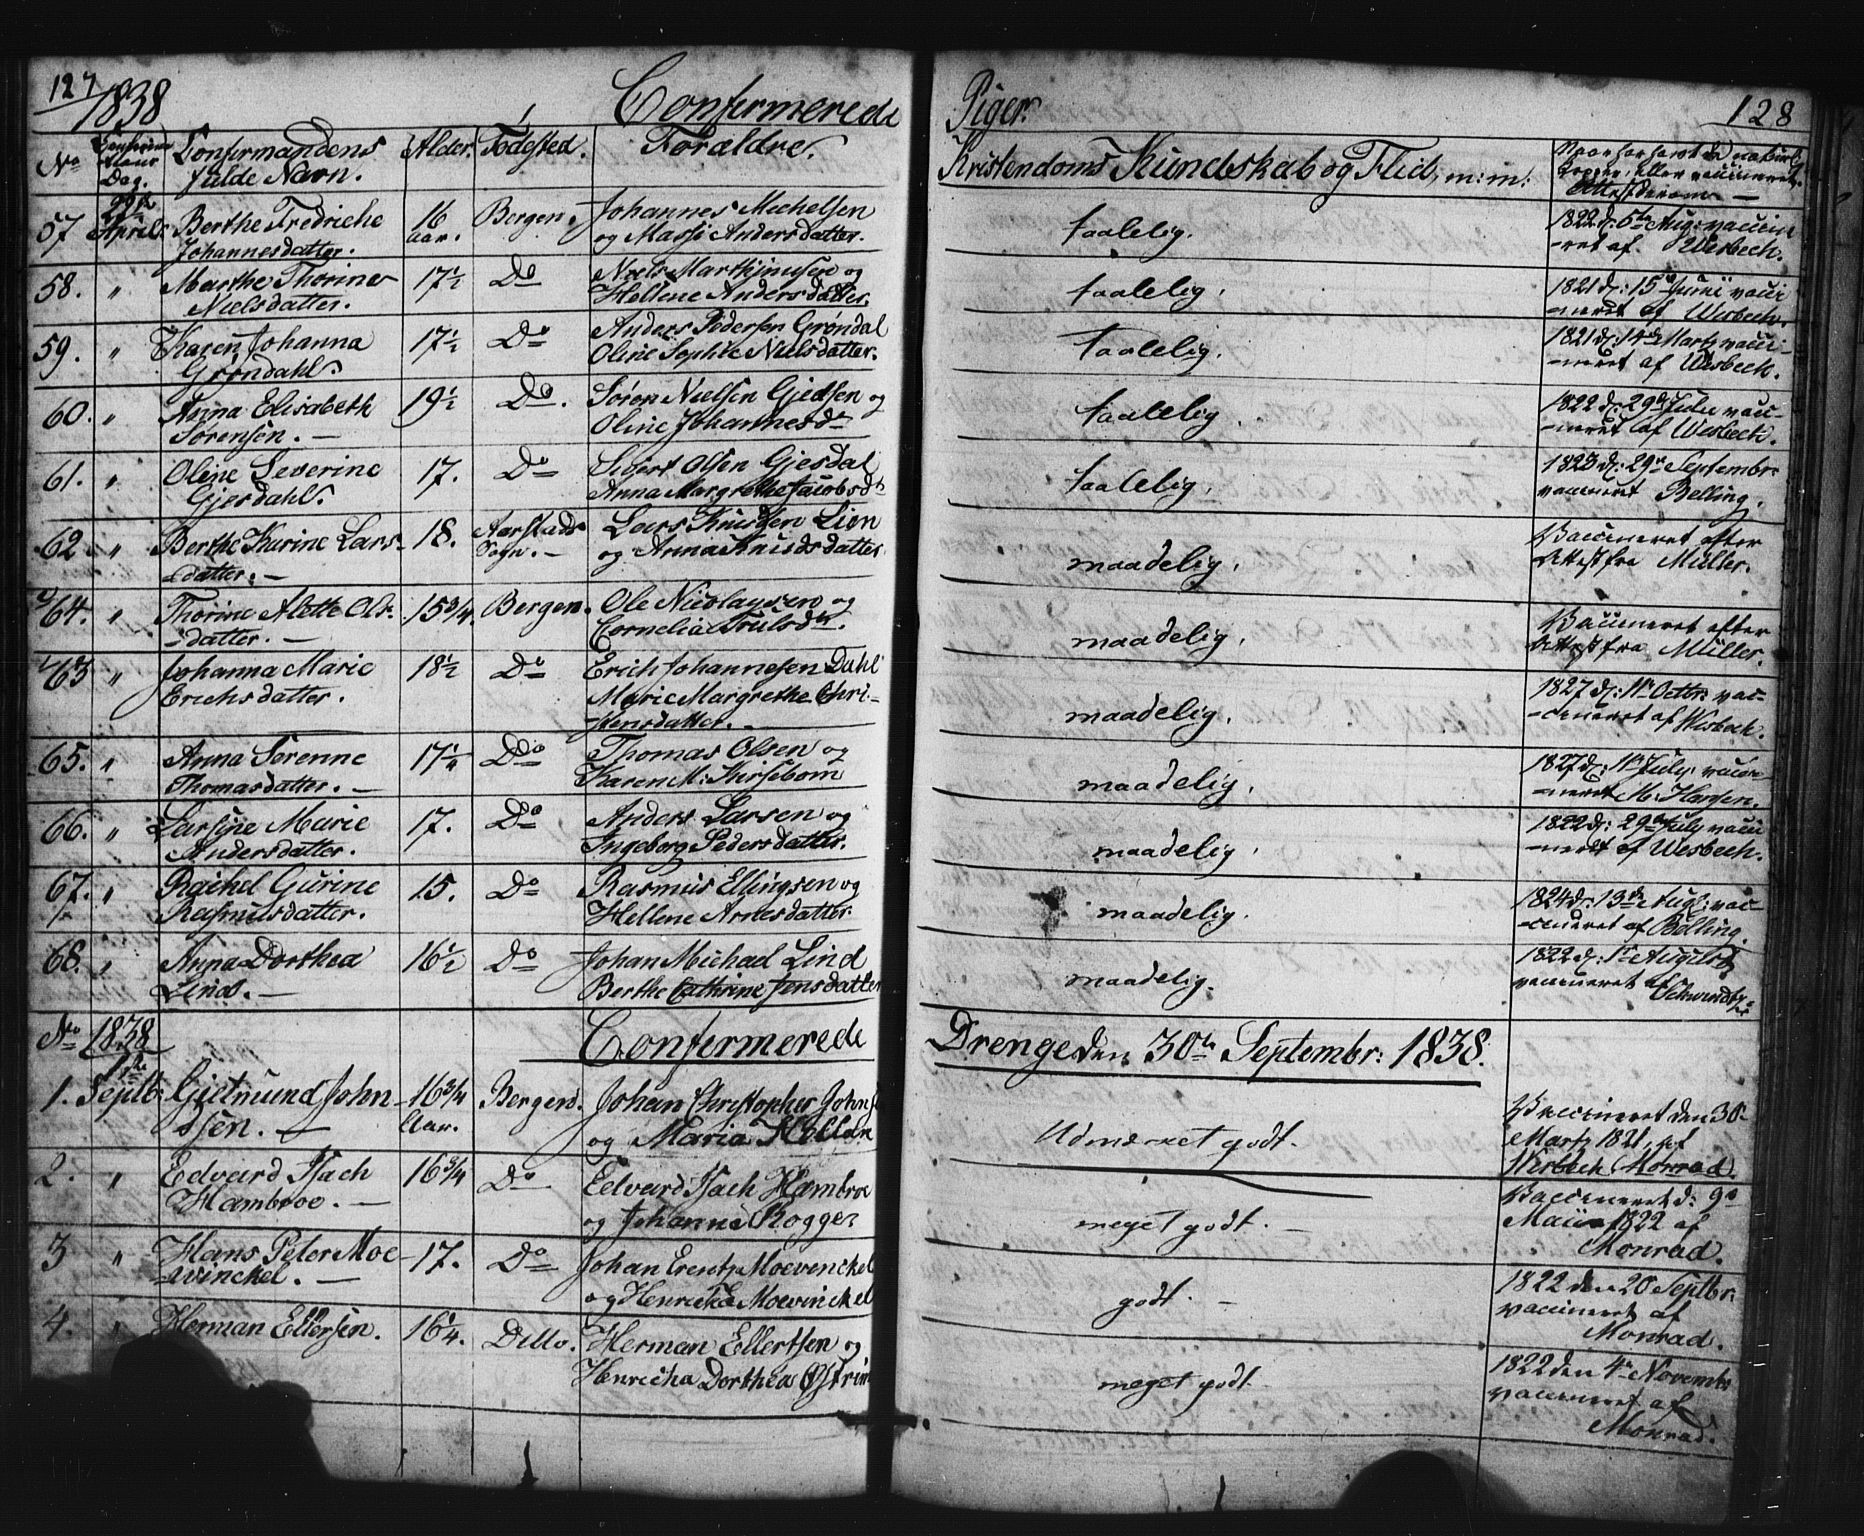 127
1838
Confirmerede
Piger.
128
No
Confirmations Dag.
Confirmandens fulde Navn.
Alder.
Fødested.
Forældre.
Kristendoms Kundskab og Flid, m: m:
57 22de April. Berthe Fredriche 16 Bergen. Johannes Michelsen taalelig. 1822 d: 5te Aug: vacci-
Johannesdatter. aar. og Massi Andersdatter. neret af Wesbech.
58. " Marthe Thorine 17½ Do Niels Marthinusen og taalelig. 1821 d: 15 Junii vacci
Nielsdatter. Hellene Andersdatter. neret af Wesbech.
59. " Karen Johanna 17½ Do Anders Pedersen Grøndal taalelig. 1821 d: 14de Marty vacci-
Grøndahl. Oline Sophie Nielsdatter. neret af Wesbech.
60. " Anna Elisabeth 19½ Do. Søren Nielsen Gjedsen og taalelig. 1822 d: 29de Julii vacci-
Sørensen. — Oline Johannesdr neret af Wesbech.
61. " Oline Severine 17. Do Sivert Olsen Gjesdal taalelig. 1823 d: 29de Septembr:
Gjesdahl. Anna Margrethe Jacobsdr vaccineret Belling.
62 " Berthe Karine Lars- 18. Aarstads Lars Knudsen Lien maadelig. Vaccineret efter
datter. — Sogn. — og Anna Knudsdatter Attest fra Müller.
64. " Thorine Alette Ols- 15¾. Bergen. Ole Nicolaysen og maadelig. Vaccineret efter
datter. — Cornelia Trulsdr. Attest fra Müller.
63 " Johanna Marie 18½ Do Erich Johannesen Dahl maadelig. 1827 d: 11te Octbr: vac-
Erichsdatter. Marie Margrethe Chri- cineret af Wesbech.
stensdatter. —
65. " Anna Sørenne 17¼ Do Thomas Olsen og maadelig. 1827 d: 11te July vacci-
Thomasdatter. — Karen M: Kirsebom neret M: Hansen.
66. " Larsine Marie 17. Do Anders Larsen og maadelig. 1822 d: 29de July vacci
Andersdatter. Ingeborg Pedersdatter. neret af Wesbech.
67. " Rachel Gurine 15. Do Rasmus Ellingsen og maadelig. 1824 d: 13de Augt: vac-
Rasmusdatter. Hellene Arnesdatter. cineret af Belling.
68. " Anna Dorthea 16½ Do Johan Michael Lind maadelig. 1822 d: 1te August
Lind. — Berthe Cathrine Jensdatter vaccineret af
No 1838 Confirmerede
Drenge den 30te Septembr: 1838.
1. Septb: Gjetmund John- 16¾ Bergen. Johan Christopher Johnsen Udmærket godt. Vaccineret den 30te
sen. — Aar. og Maria Marty 1821 af
Wesbech Monrad.
2. " Edvard Isach 16¾ Do Edvard Isach Hambroe meget godt. — Vaccineret d: 9de
Hambroe. — og Johanne Rogge Maii 1822 af
Monrad.
3 " Hans Peter Moe- 17. Do Johan Erentz Moevinckel godt. — 1822 den 20 Septbr:
vinckel. — og Henricha Moevinckel vaccineret af
Monrad.
4. " Herman Ellersen. 16¼. Ditto. Herman Ellertsen og meget godt. 1822 den 4de Novembr
Henricka Dorthea vaccineret af
Monrad.